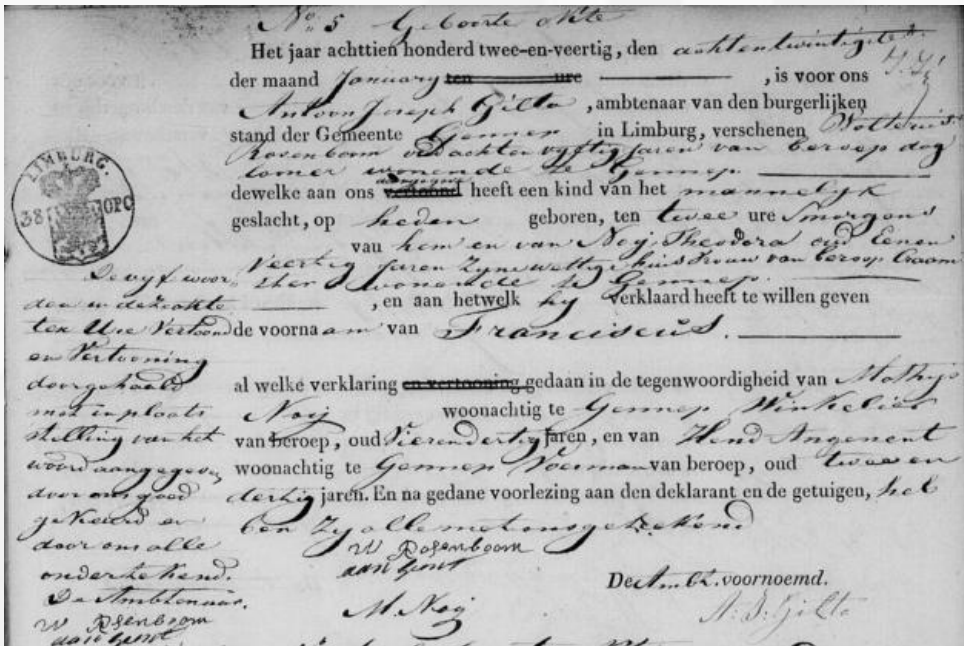 No 5 Geboorte akte
Het jaar achttien honderd twee-en-veertig, den achtentwintigste
der maand January ten ure , is voor ons
Antoon Joseph Gilta , ambtenaar van den burgerlijken
stand der Gemeente Gennep in Limburg, verschenen Wolterus
Rosenboom oud achtenvyftig jaren van beroep dag
loner wonende te Gennep
aangegeven
dewelke aan ons vertoond heeft een kind van het mannelyk
geslacht, op heden geboren, ten twee ure Smorgens
van hem en van Noij Theodora oud Eenen
Veertig jaren Zyne wettige huisvrouw van beroep Craam
ster wonende te Gennep
, en aan hetwelk hy verklaard heeft te willen geven
de voornaam van Franciscus.
al welke verklaring en vertooning gedaan in de tegenwoordigheid van Mathys
Noij woonachtig te Gennep Winkelier
van beroep, oud Vierendertig jaren, en van Hend Angenent
woonachtig te Gennep Voerman van beroep, oud twee en
dertig jaren. En na gedane voorlezing aan den deklarant en de getuigen, heb
ben Zy alle met ons geteekend
W Rosenboom
M Noij
De Ambt. voornoemd.
A. J. Gilta
LIMBURG.
38 OPC
De vyf woor
den in deze akte
ten Ure Vertoond
en Vertooning
doorgehaald
met in plaats
stelling van het
woord aangegeven
door ons goed
gekeurd en
door ons alle
onderteekend.
De Ambtenaar.
W Rosenboom